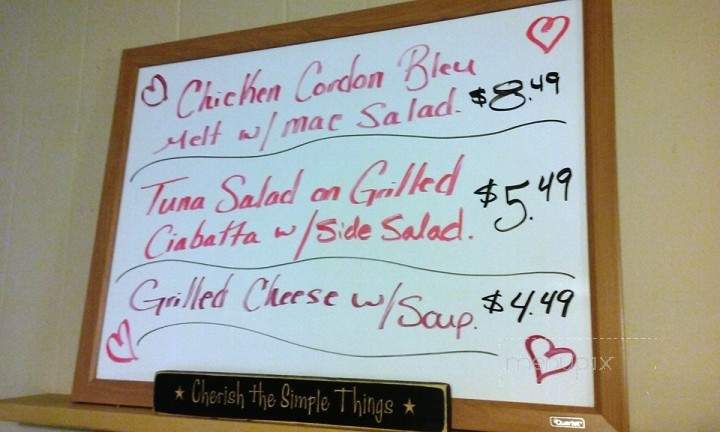 Chicken Cordon Bleu
Melt w/ mac Salad. $8.49
Tuna Salad on Grilled
Ciabatta w/ Side Salad. $5.49
Grilled Cheese w/ Soup. $4.49
menupix
★ Cherish the Simple Things ★
Quartet